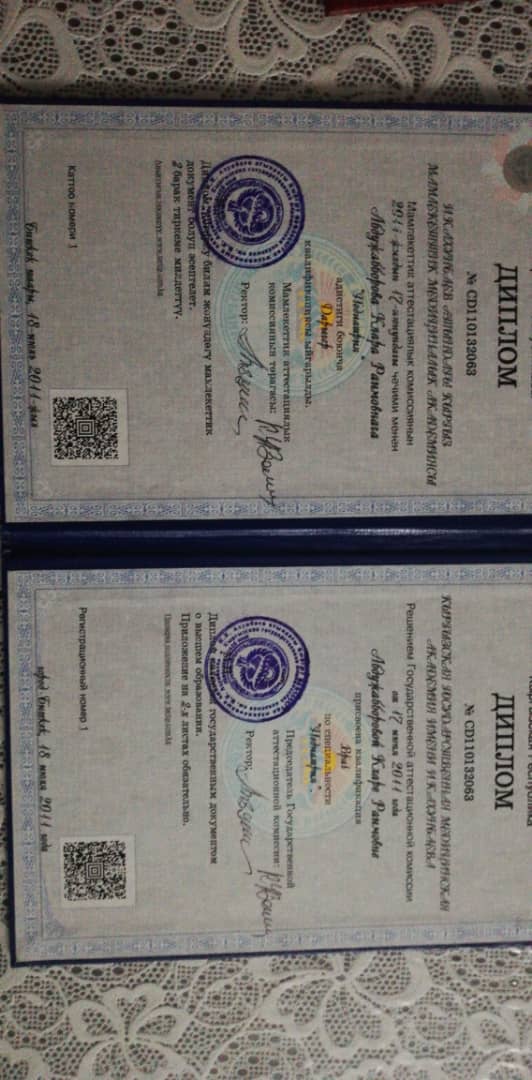 ДИПЛОМ
№ CD110132063
И.К.АХУНБАЕВ АТЫНДАГЫ КЫРГЫЗ
МАМЛЕКЕТТИК МЕДИЦИНАЛЫК АКАДЕМИЯСЫ
Мамлекеттик аттестациялык комиссиянын
2011-жылдын 17-июнундагы чечими менен
Абдужабборова Клара Раимовнага
"Педиатрия"
адистиги боюнча
Дарыгер
квалификациясы ыйгарылды.
Мамлекеттик аттестациялык
комиссиянын төрагасы:
Ректор:
Диплом жогорку билим жөнүндөгү мамлекеттик
документ болуп эсептелет.
2 барак тиркеме милдеттүү.
Каттоо номери 1
Бишкек шаары, 18 июль 2011-жыл
ДИПЛОМ
№ CD110132063
КЫРГЫЗСКАЯ ГОСУДАРСТВЕННАЯ МЕДИЦИНСКАЯ
АКАДЕМИЯ ИМЕНИ И.К.АХУНБАЕВА
Решением Государственной аттестационной комиссии
от 17 июня 2011 года
Абдужабборовой Кларе Раимовне
присвоена квалификация
Врач
по специальности
"Педиатрия"
Председатель Государственной
аттестационной комиссии:
Ректор:
Диплом является государственным документом
о высшем образовании.
Приложение на 2-х листах обязательно.
Регистрационный номер 1
город Бишкек, 18 июля 2011 года